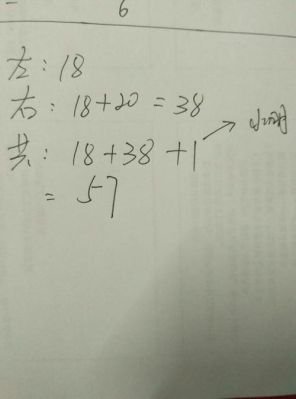 6
左：18
右：18+20=38
共：18+38+1→小明
=57